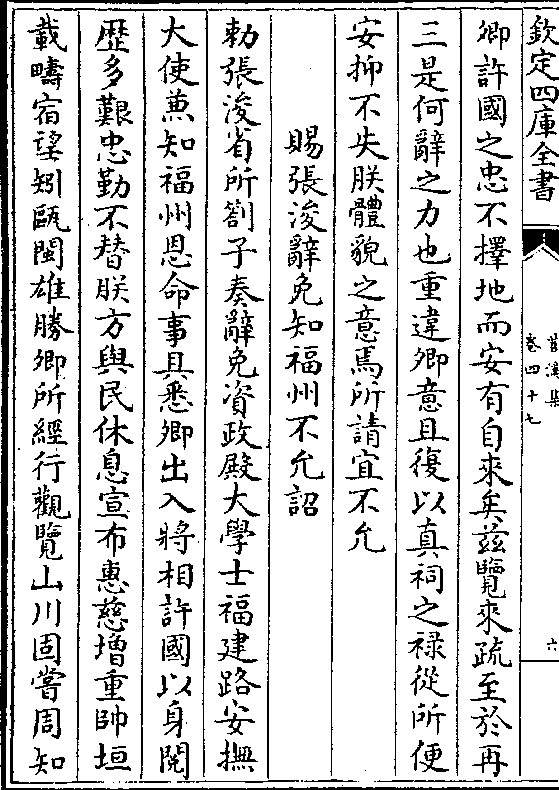 欽定四庫全書
苕溪集
卷四十七
六
卿許國之忠不擇地而安有自來矣兹覽來疏至於再
三是何辭之力也重違卿意且復以真祠之禄從所便
安抑不失朕體貌之意焉所請宜不允
賜張浚辭免知福州不允詔
勅張浚省所劄子奏辭免資政殿大學士福建路安撫
大使兼知福州恩命事具悉卿出入將相許國以身閱
歴多艱忠勤不替朕方與民休息宣布惠慈增重帥垣
載疇宿望矧甌閩雄勝卿所經行觀覽山川固嘗周知